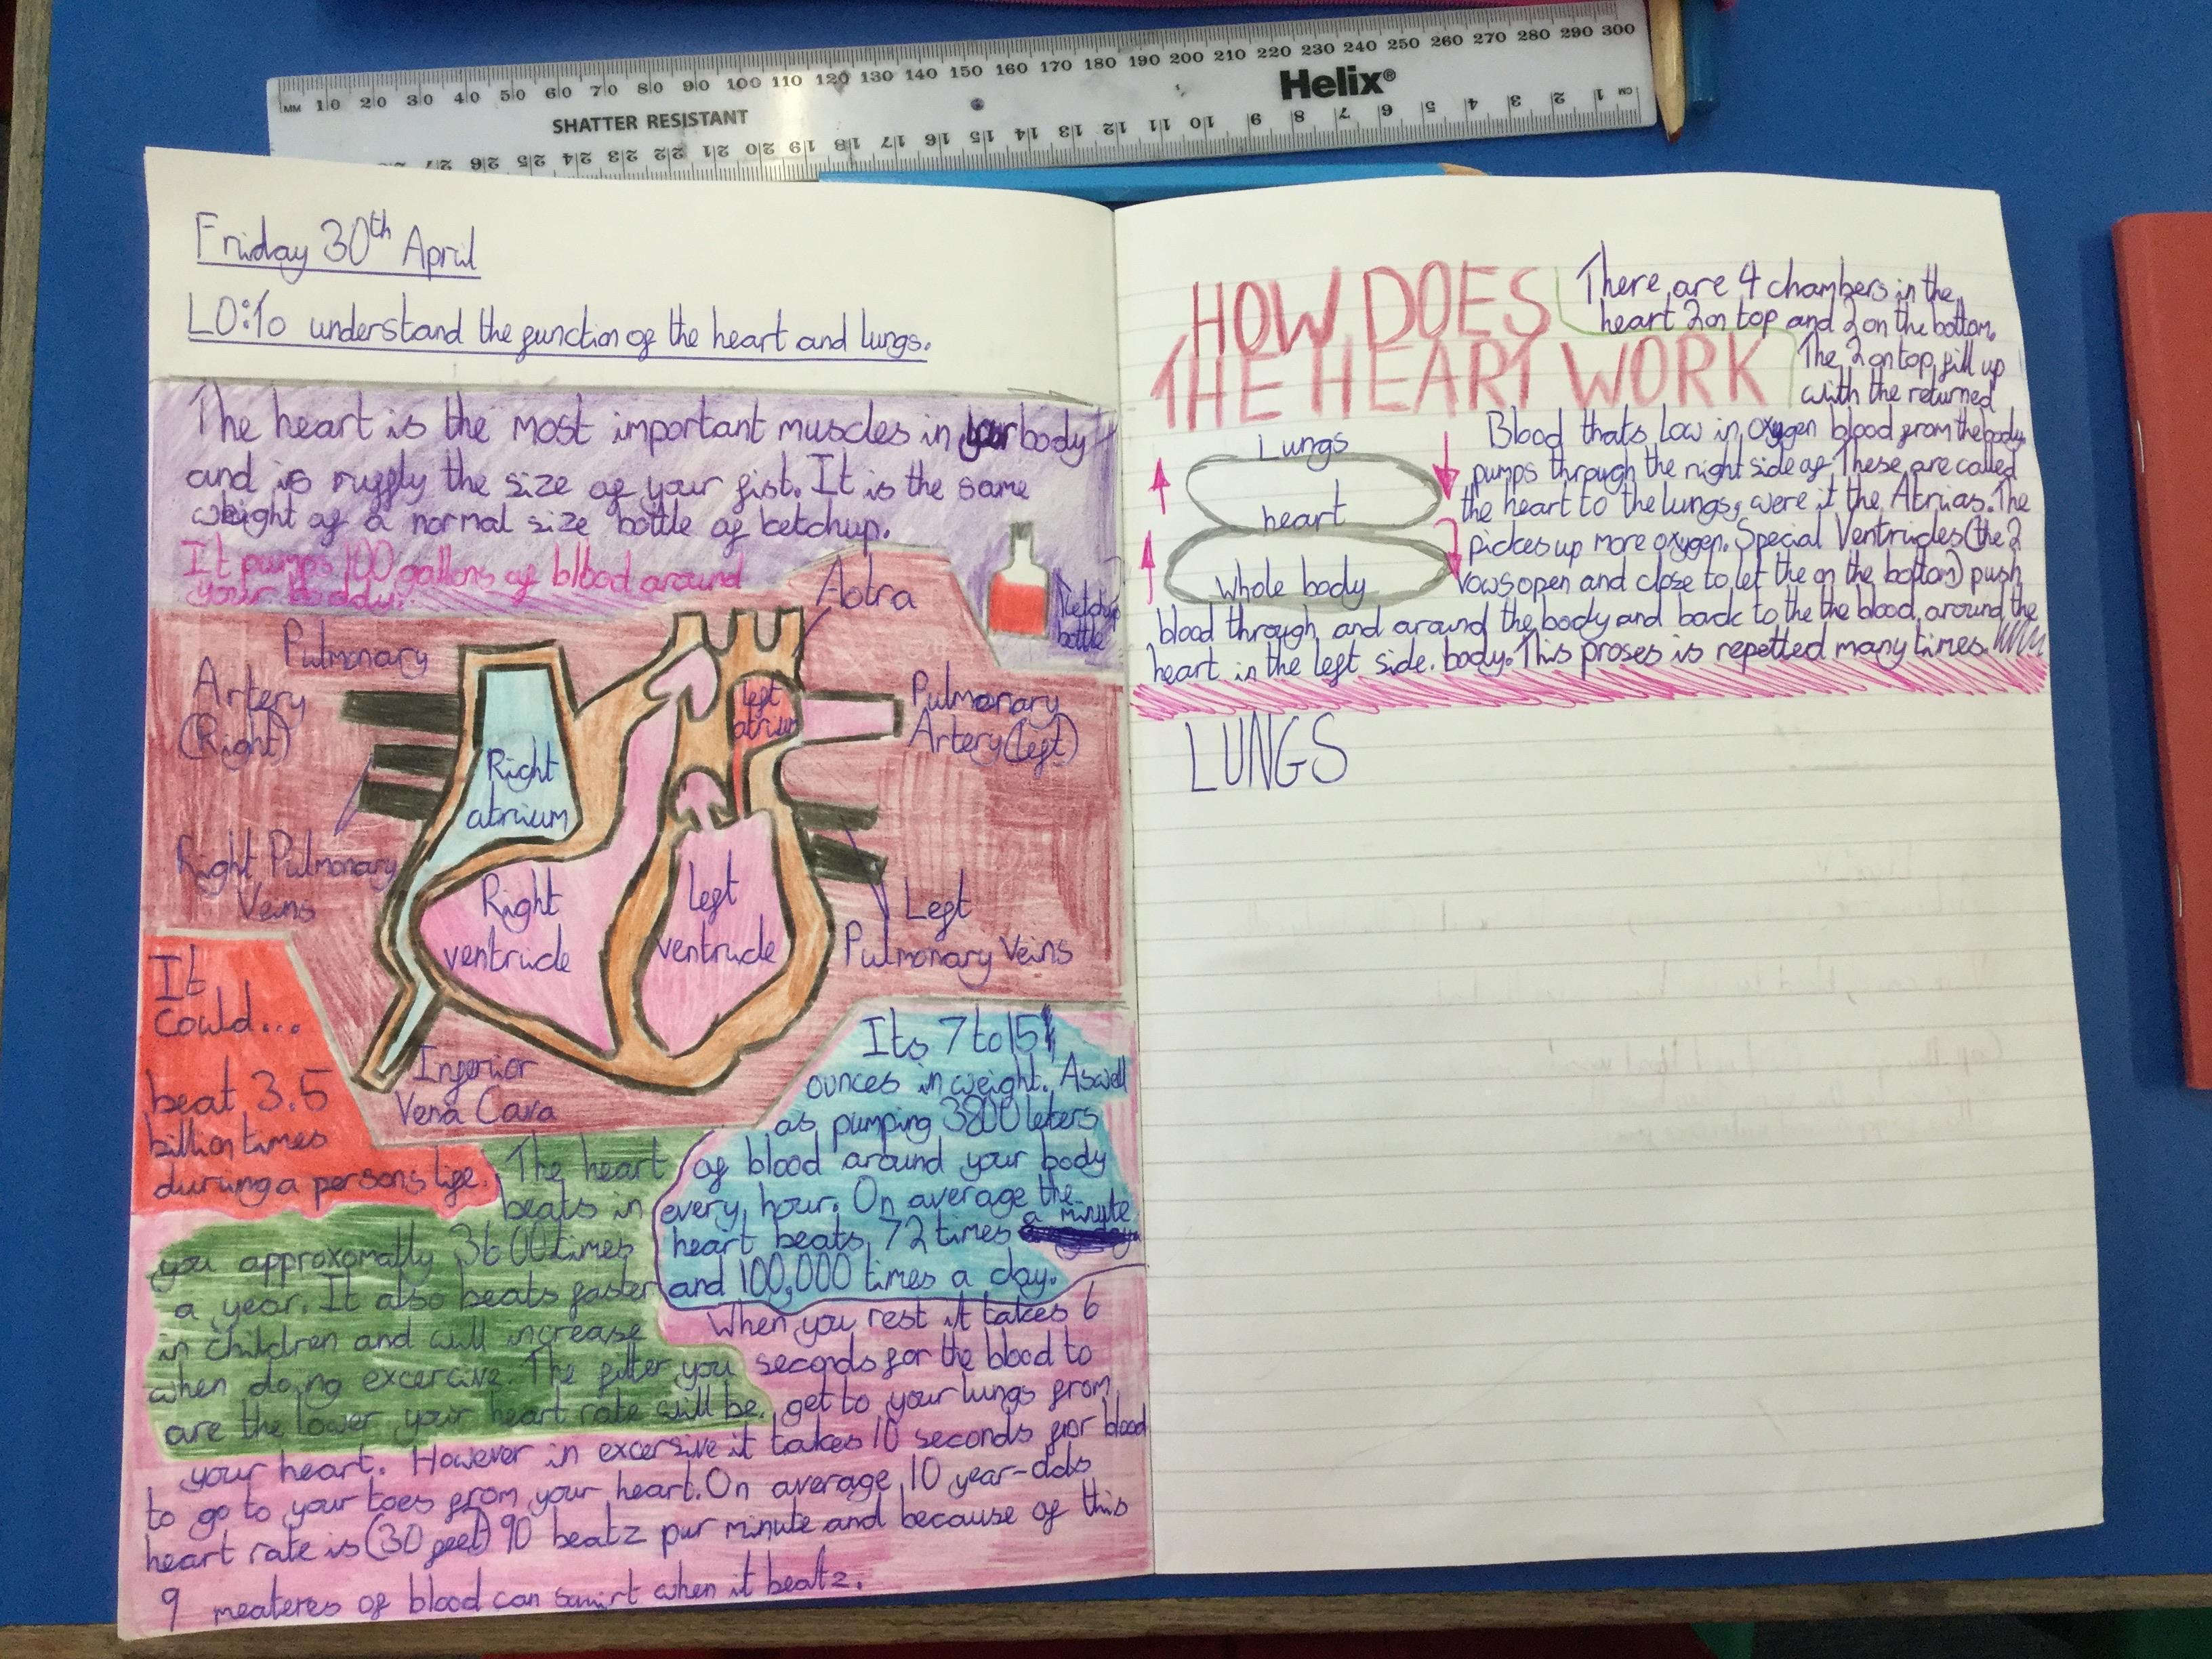 MM 10 20 30 40 50 60 70 80 90 100 110 120 130 140 150 160 170 180 190 200 210 220 230 240 250 260 270 280 290 300
Helix®
SHATTER RESISTANT
27 26 25 24 23 22 21 20 19 18 17 16 15 14 13 12 11 10 9 8 7 6 5 4 3 2 1 CM
Friday 30th April
LO:To understand the function of the heart and lungs.
The heart is the most important muscles in your body
and is ruffly the size of your fist. It is the same
weight of a normal size bottle of ketchup.
It pumps 100 gallons of blood around
your boddy.
Ketchup
bottle
Aotra
Pulmonary
Artery
(Right)
left
atrium
Pulmonary
Artery (left)
Right
atrium
Right Pulmonary
Veins
Right
ventricle
left
ventricle
Left
Pulmonary Veins
Inferior
Vena Cava
It
Could...
beat 3.5
billion times
during a persons life.
Its 7 to 15
ounces in weight. Aswell
as pumping 3800 leters
of blood around your body
every hour. On average the
heart beats 72 times a minute
and 100,000 times a day.
The heart
beats in
you approxomatly 3600 times
a year. It also beats faster
in children and will increase
when doing excercive. The fitter you
are the lower your heart rate will be.
When you rest it takes 6
seconds for the blood to
get to your lungs from
your heart. However in excersive it takes 10 seconds for blood
to go to your toes from your heart. On average 10 year-olds
heart rate is (30 feet) 90 beatz pur minute and because of this
9 meateres of blood can squirt when it beatz.
HOW DOES
THE HEART WORK
There are 4 chambers in the
heart 2 on top and 2 on the bottom.
The 2 on top fill up
with the returned
blood from the body.
These are called
the Atrias. The
Ventricles (the 2
on the bottom) push
the blood around the
body. This proses is repetted many times.
Lungs
heart
Whole body
Blood thats Low in oxygen
pumps through the right side of
the heart to the lungs, were it
pickes up more oxygen. Special
vows open and close to let the
blood through and around the body and back to the
heart in the left side.
LUNGS